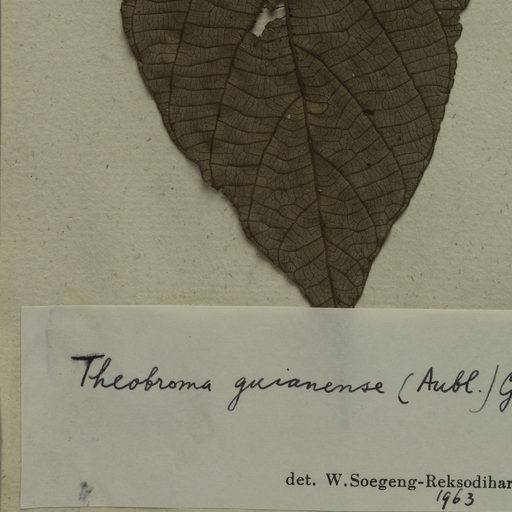 Theobroma guianense (Aubl.) G
det. W.Soegeng-Reksodihar
1963